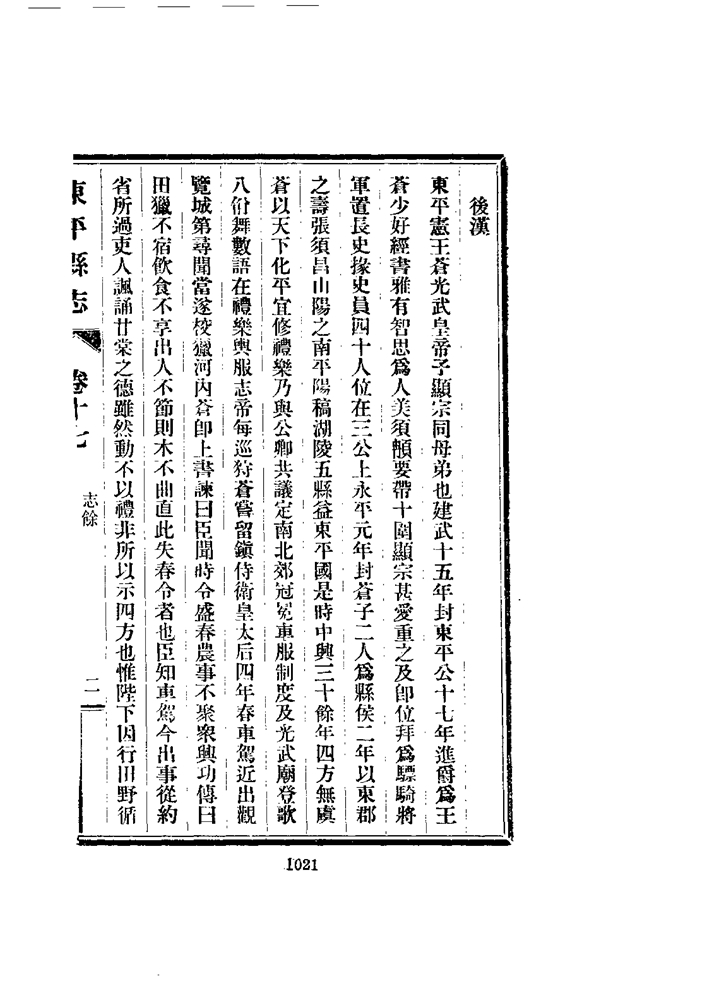 後漢
東平憲王蒼光武皇帝子顯宗同母弟也建武十五年封東平公十七年進爵爲王
蒼少好經書雅有智思爲人美須髯要帶十圍顯宗甚愛重之及卽位拜爲驃騎將
軍置長史掾史員四十人位在三公上永平元年封蒼子二人爲縣侯二年以東郡
之壽張須昌山陽之南平陽槀湖陵五縣益東平國是時中興三十餘年四方無虞
蒼以天下化平宜修禮樂乃與公卿共議定南北郊冠冕車服制度及光武廟登歌
八佾舞數語在禮樂輿服志帝每巡狩蒼嘗留鎭侍衛皇太后四年春車駕近出觀
覽城第尋聞當遂校獵河內蒼卽上書諫曰臣聞時令盛春農事不聚衆興功傳曰
田獵不宿飮食不享出入不節則木不曲直此失春令者也臣知車駕今出事從約
省所過吏人諷誦甘棠之德雖然動不以禮非所以示四方也惟陛下因行田野循
東平縣志 卷十七 志餘 二
1021